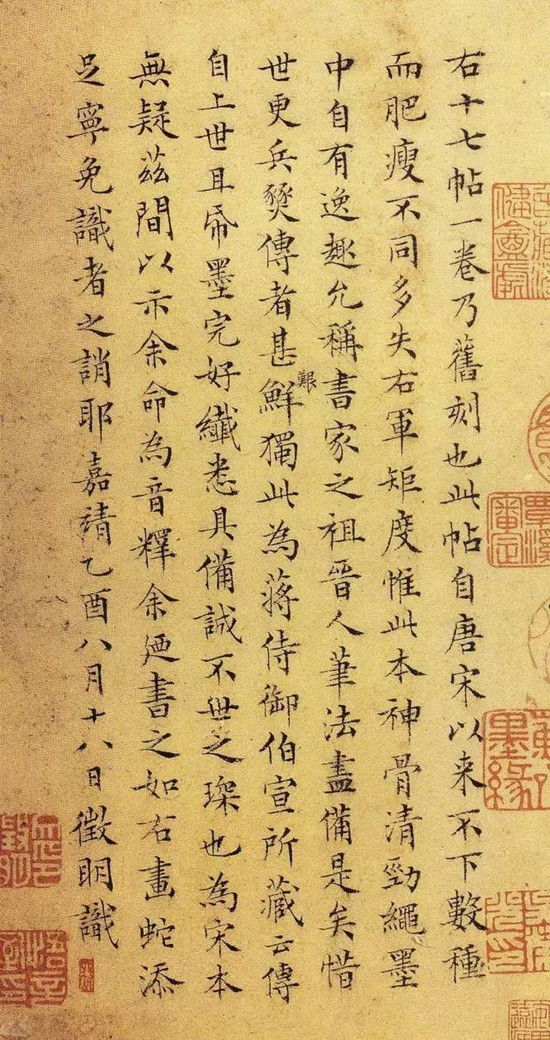 右十七帖一卷乃舊刻也此帖自唐宋以来不下數種
而肥瘦不同多失右軍矩度惟此本神骨清勁繩墨
中自有逸趣允稱書家之祖晉人筆法盡備是矣惜
艱
世更兵燹傳者甚鮮獨此為蔣侍御伯宣所藏云傳
自上世且帋墨完好纖悉具備誠不世之琛也為宋本
無疑茲間以示余命為音釋余廼書之如右畫蛇添
足寧免識者之誚耶嘉靖乙酉八月十八日徵明識
覃溪
審定
墨緣
悟言
室印